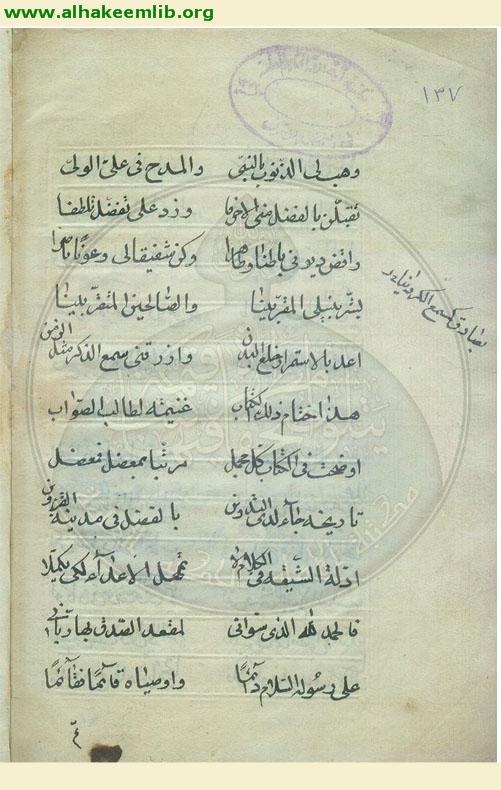 www.alhakeemlib.org
١٣٧
وهب لي الذنوب بالنبي والمدح في علي الولي
تقبلن بالفضل مني الاخرفا وزد علي تفضل تلطفا
واقض ديوني باطنا وظاهرا وكن شفيقا لي وعونا ناصرا
بشر بنيلي المقربينا والصالحين المتقربينا
اعد بالاستمرار خلع البدن وارزقني سمع الذكر مثل
هذا ختام ذلك الكتاب غنيمة لطالب الصواب
اوضحت في الكتاب كل مجمل مرتبا بمفصل فمفصل
تاريخه جاء لدى التدوين بالفضل في مدينة القزوين
ادلة الشيعة في الكلام تمهل الاعداء لكي
فالحمد لله الذي سواني لمقعد الصدق بها
على رسوله السلام دائما واوصياه قائما فقائما